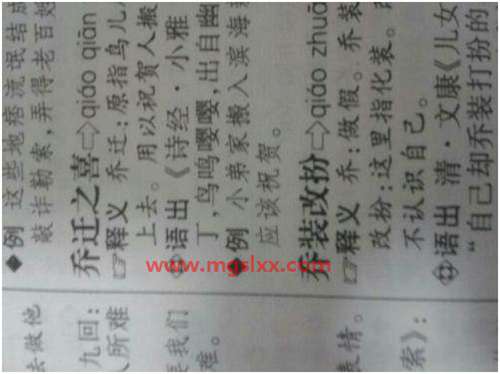 ◆例 这些地痞流氓结成
敲诈勒索，弄得老百姓
乔迁之喜⇨qiáo qiān
☞释义 乔迁：原指鸟儿
上去。用以祝贺人搬
语出《诗经·小雅
丁，鸟鸣嘤嘤，出自幽
◆例 小弟家搬入滨海
应该祝贺。
乔装改扮⇨qiáo zhuā
☞释义 乔：做假。乔装
改扮：这里指化装。
不认识自己。
语出 清·文康《儿女
“自己却乔装打扮的
去做他
九回：
人所难
我们
难。
表情。
索》：
www.mgslxx.com